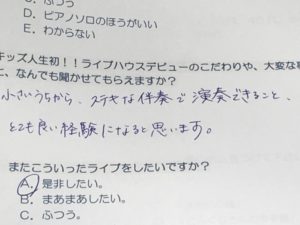 C. ふつう
D. ピアノソロのほうがいい
E. わからない
キッズ人生初！！ライブハウスデビューのこだわりや、大変な
、なんでも聞かせてもらえますか？
小さいうちから、ステキな伴奏で演奏できること、
とても良い経験になると思います。
またこういったライブをしたいですか？
A. 是非したい。
B. まあまあしたい。
C. ふつう。